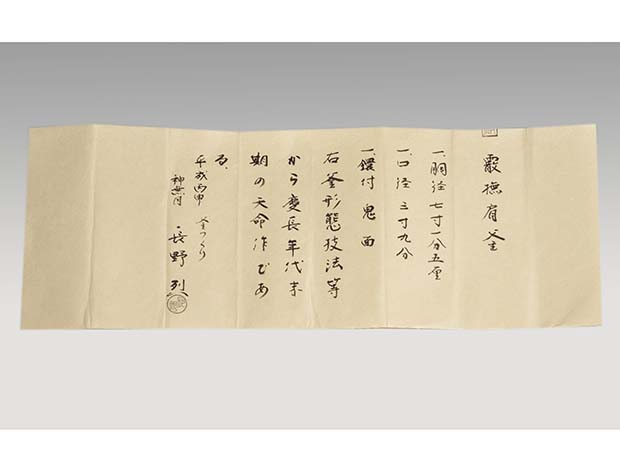 霰撫肩釜
一、胴径 七寸一分五厘
一、口径 三寸九分
一、鐶付 鬼面
右釜形態技法等
から慶長年代末
期の天命作であ
る。
平成丙申 釜つくり
神無月 長野 烈